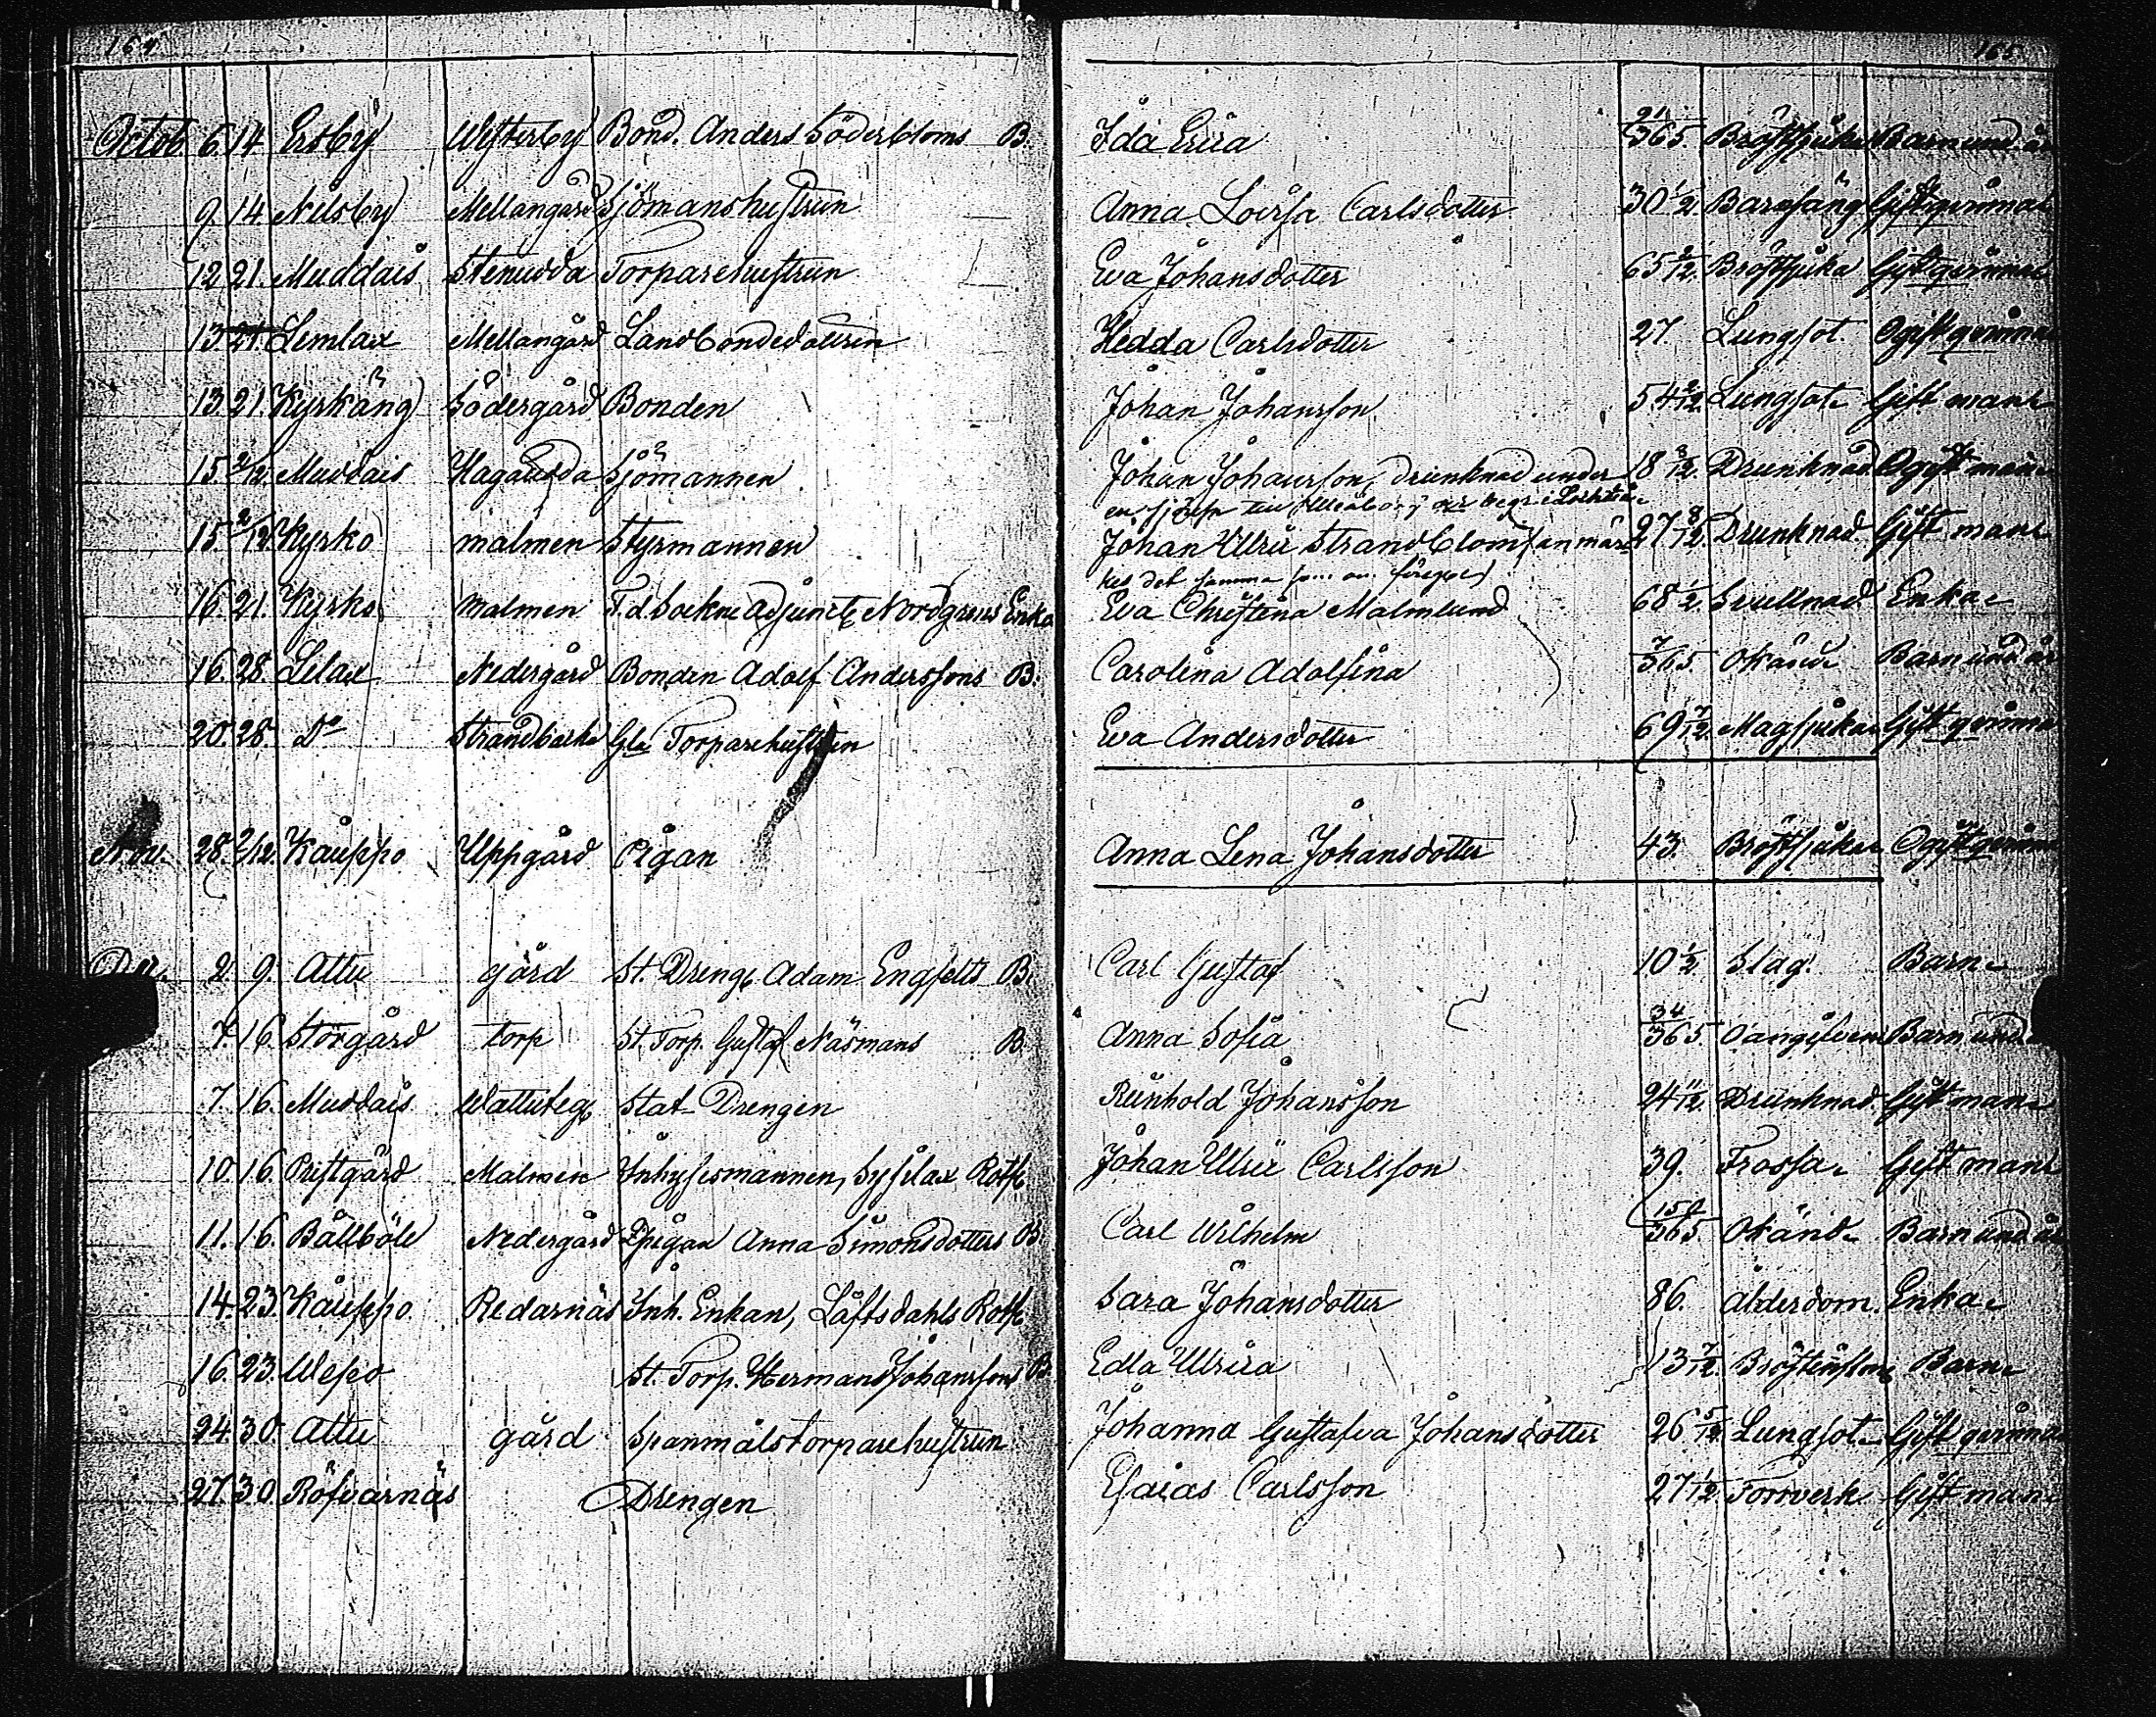 164
165
Octob. 6. 14. Ersby Westerby Bond. Anders Söderbloms B. Ida Erica 21/365. Bröstsjuka Barn und. år
9. 14. Nilsby Mellangård Sjömanshustrun Anna Lovisa Carlsdotter 30 1/2. Barnsäng Gift qvinna
12. 21. Muddais Stenudda Torparehustrun Eva Johansdotter 65 /12. Bröstsjuka Gift qvinna
13. 21. Lemlax Mellangård Landbondedottren Hedda Carlsdotter 27. Lungsot. Ogift qvinna
13. 21. Kyrkäng Södergård Bonden Johan Johansson 54 2/12. Lungsot Gift man
15. 2/12. Muddais Hagaudda Sjömannen Johan Johansson, drunknad under 18 8/12. Drunknad Ogift man
en
15. 2/12. Kyrko malmen Styrmannen Johan Ulric Strandblom (anmär 27 8/12. Drunknad. Gift man
kes det samma som om föreg.)
16. 21. Kyrko malmen F. d. Sockne Adjunct Nordgrens Enka Eva Christina Malmlund 68 1/2. Svullnad. Enka
16. 28. Lilax Nedergård Bonden Adolf Anderssons B. Carolina Adolfina 7/365. Okänd Barn und. år
20. 28. Do Strandbacka Gla Torparehustrun Eva Andersdotter 69 7/12. Magsjuka Gift qvinna
Nov. 28. 2/12. Kauppo Uppgård Pigan Anna Lena Johansdotter 43. Bröstsjuka Ogift qvinna
Dec. 2. 9. Attu gård St. Dreng. Adam Engfelts B. Carl Gustaf 10 1/2. Slag. Barn
7. 16. Storgård torp St. Torp. Gustaf Näsmans B. Anna Sofia 34/365. Oangifven Barn und.
7. 16. Muddais Wattuteg Stat Drengen Reinhold Johansson 24 11/12. Drunknad. Gift man
10. 16. Prestgård Malmen Inhysesmannen, Sysilax Rote Johan Ulric Carlsson 39. Frossa Gift man
11. 16. Bållböle Nedergård Pigan Anna Simonsdotters B. Carl Wilhelm 152/365 Okänd Barn und. år
14. 23. Kauppo Redarnäs Inh. Enkan, Löftsdahls Rote Sara Johansdotter 86. Ålderdom. Enka
16. 23. Wepo St. Torp. Hermans Johanssons B. Edla Ulrica 13 7/12. Bröstinflam Barn
24. 30. Attu gård Spanmålstorparehustrun Johanna Gustafva Johansdotter 26 5/12. Lungsot Gift qvinna
27. 30. Röfvarnäs Drengen Esaias Carlsson 27 1/12. Torrverk Gift man